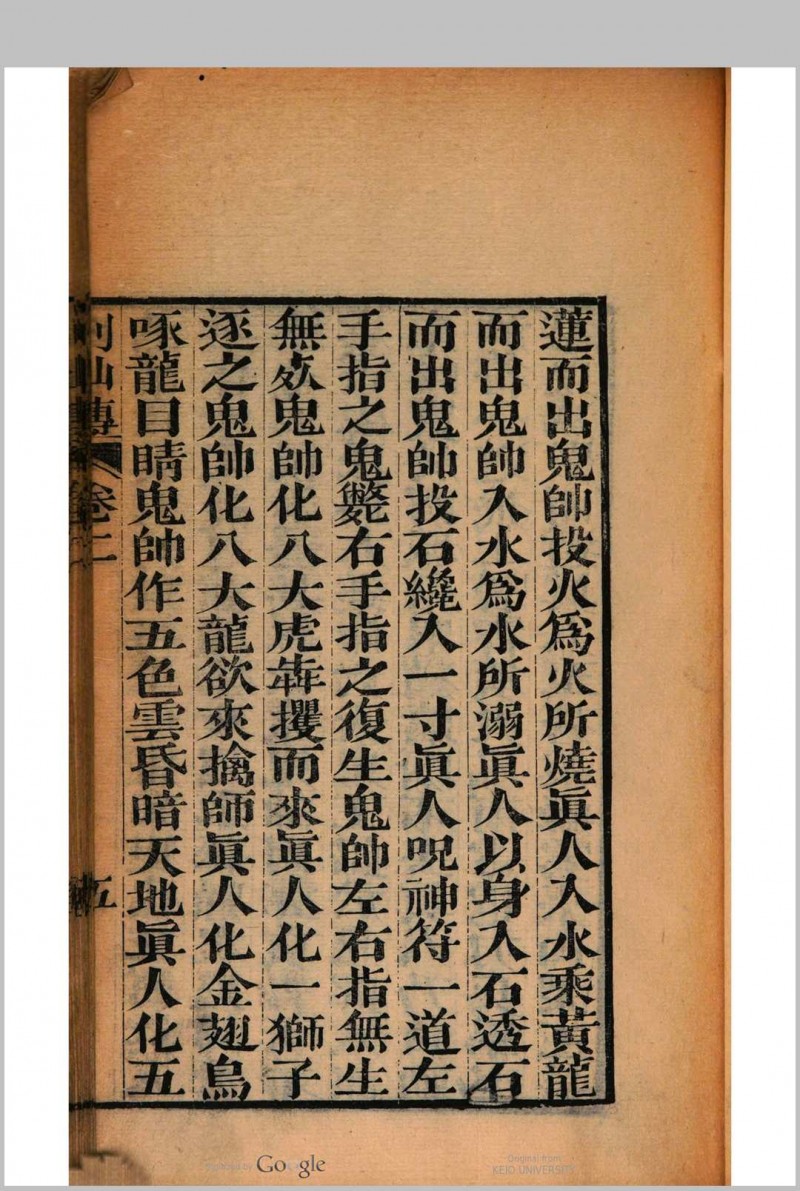 蓮而出鬼帥投火爲火所燒眞人入水乘黃龍
而出鬼帥入水爲水所溺眞人以身入石透石
而出鬼帥投石纔入一寸眞人呪神符一道左
手指之鬼斃右手指之復生鬼帥左右指無生
無死鬼帥化八大虎犇攫而來眞人化一獅子
逐之鬼帥化八大龍欲來擒師眞人化金翅鳥
啄龍目睛鬼帥作五色雲昏暗天地眞人化五
列仙傳 卷二 五
Google
Original from
KEIO UNIVERSITY